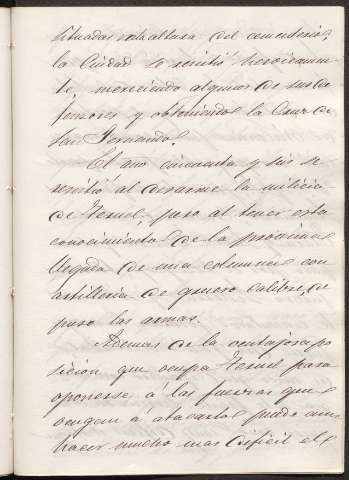 situadas en la altura del cementerio,
la Ciudad le resistió heroicamen-
te, mereciendo algunos de sus de-
fensores y obteniendo la Cruz de
San Fernando.
El año cincuenta y seis se
resistió al desarme la milicia
de Teruel; pero al tener esta
conocimiento de la proxima
llegada de una columna con
artilleria de grueso calibre, de
puso las armas.
Ademas de la ventajosa po
sicion que ocupa Teruel para
oponerse á las fuerzas que
vengan á atacarla puede aun
hacer mucho mas dificil el